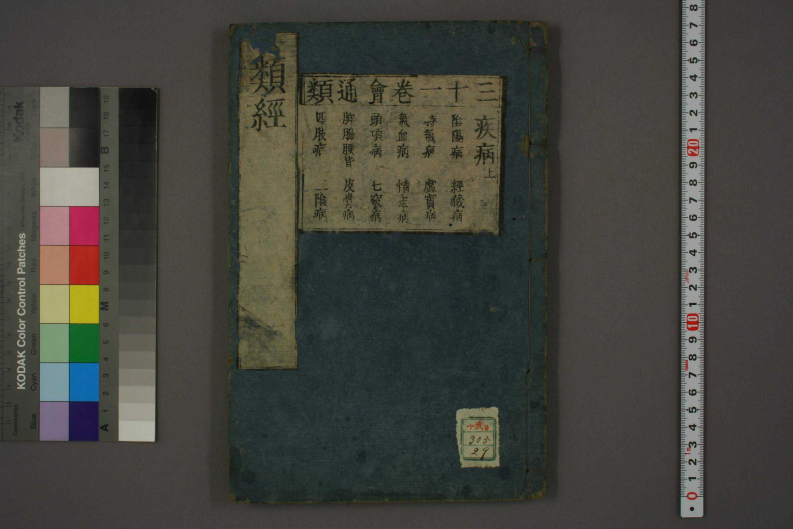 類經
三十一卷會通類
疾病上
陰陽病 經藏病
時氣病 虛實病
氣血病 情志病
頭項病 七竅病
皮骨病
四肢病 二陰病
305
29
Kodak
KODAK Color Control Patches
Blue Cyan Green Yellow Red Magenta White
A 1 2 3 4 5 6 M 8 9 10 11 12 13 14 15 B 17 18 19
0 1 2 3 4 5 6 7 8 9 10 1 2 3 4 5 6 7 8 9 20 1 2 3 4 5 6 7 8